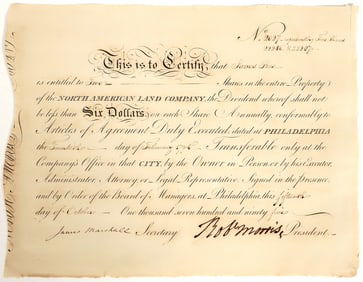 This is to Certify, that James
is entitled to Five Shares in the entire Property
of the NORTH AMERICAN LAND COMPANY, the Dividend whereof shall not
be less than Six Dollars on each Share Annually, conformably to
Articles of Agreement Duly Executed, dated at PHILADELPHIA
the day of February 1795 Transferable only at the
Company's Office in that CITY, by the OWNER in Person or by his Executor,
Administrator, Attorney, or Legal Representative. Signed in the presence,
and by Order of the Board of Managers, at Philadelphia, this
day of October One thousand seven hundred and ninety five
James Marshall Secretary Rob Morris, President.